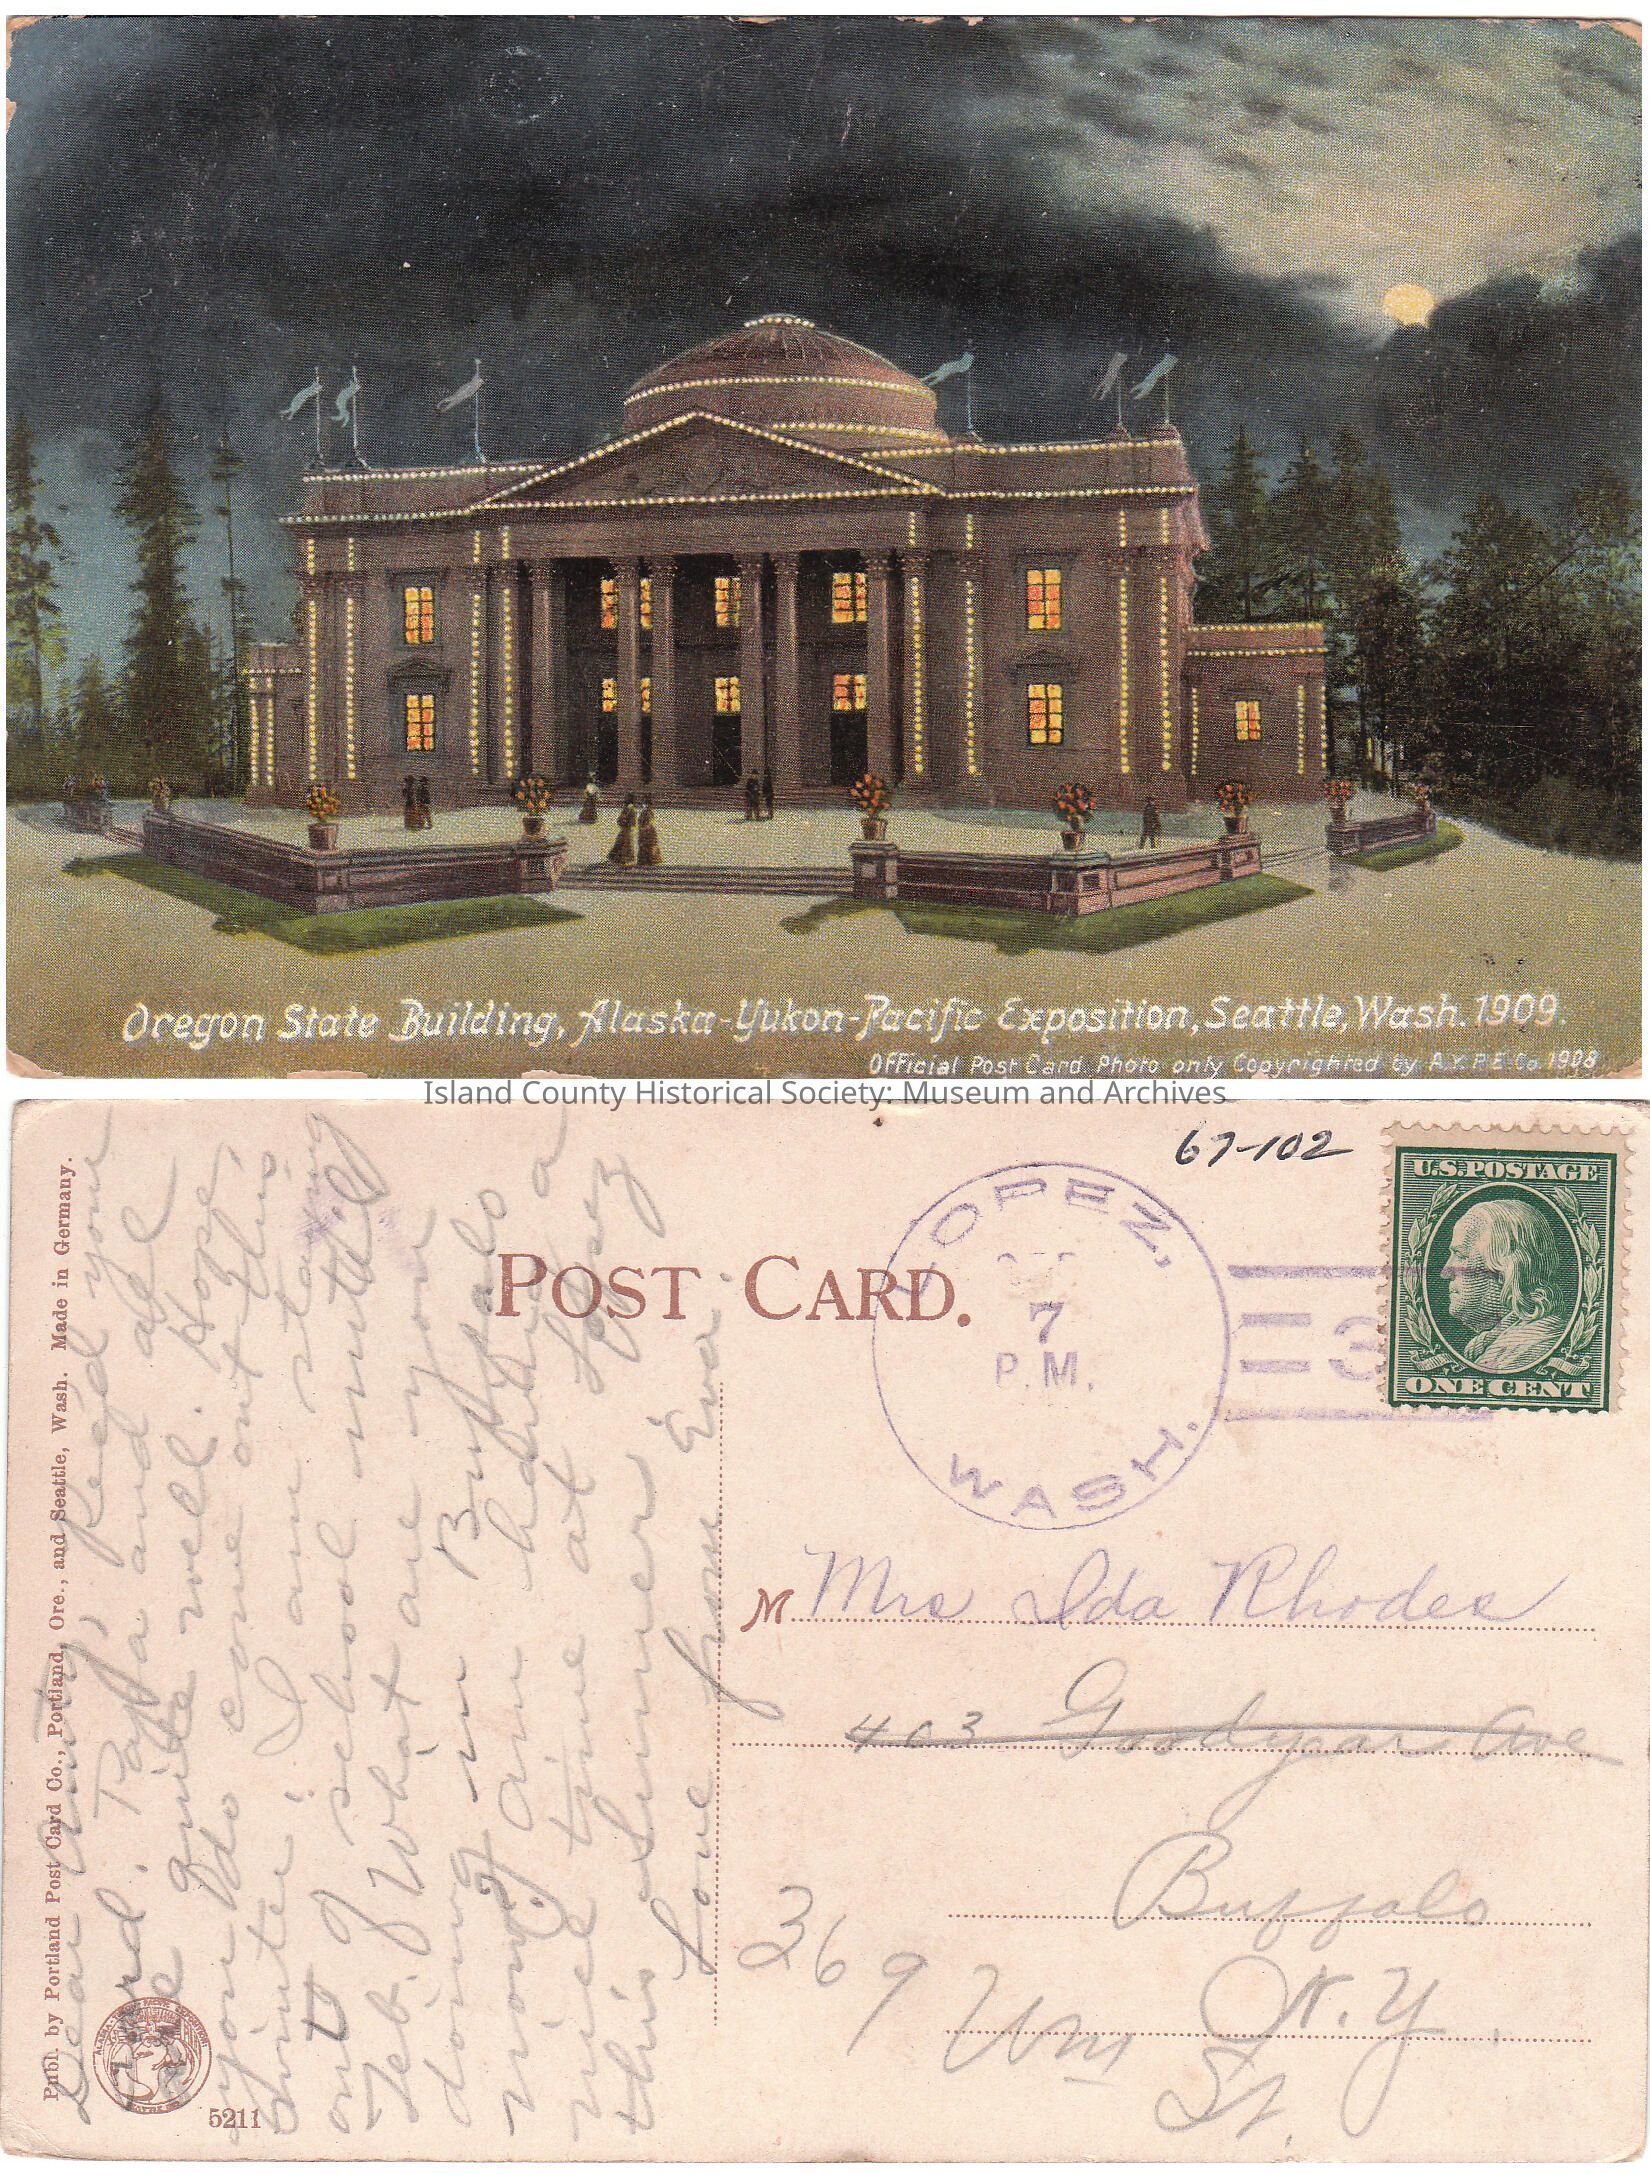 Oregon State Building, Alaska-Yukon-Pacific Exposition, Seattle, Wash. 1909.
Official Post Card Photo only Copyrighted by A.Y.P.E. Co. 1908
Island County Historical Society: Museum and Archives
67-102
U.S. POSTAGE
ONE CENT
LOPEZ,
7
P.M.
WASH.
3
POST CARD.
Publ. by Portland Post Card Co., Portland, Ore., and Seattle, Wash. Made in Germany.
Dear Aunty, Rec'd your
card. Papa and all
are quite well. Hope
you do come out this
winter. I am staying
out of school until
Feb. What are you
doing in Buffalo
now? am having a
nice time at Lopez
this summer
Love from Eva.
5211
M Mrs Ida Rhodes
403 Goodyear Ave
Buffalo
N.Y.
369 Wm St.